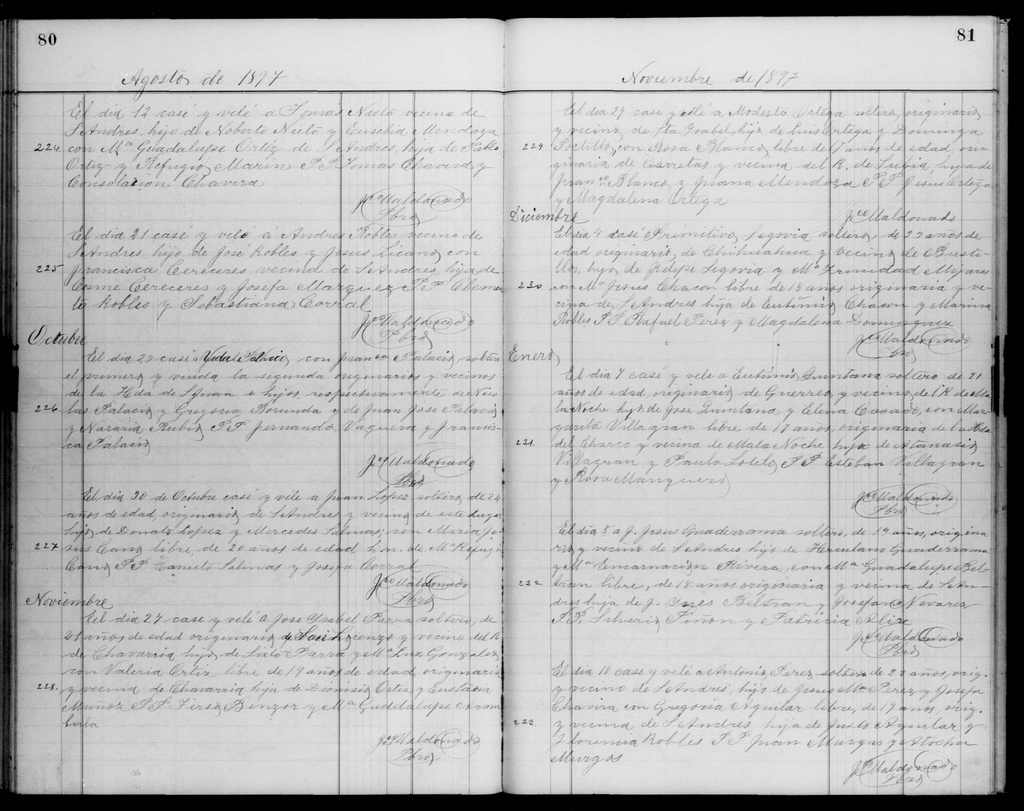 80
Agosto de 1897
El dia 12 casé y velé a Tomas Nieto vecino de
S. Andres, hijo de Noberto Nieto y Eusebia Mendoza
224 con Ma Guadalupe Ortiz de S. Andres, hija de Pablo
Ortiz y Refugio Marin P.P. Tomas Chavera y
Consolacion Chavera
Je Maldonado
Pbro
El dia 21 casé y velé á Andres Robles vecino de
S. Andres, hijo de José Robles y Jesus Licano, con
225 Francisca Cereceres vecina de S. Andres, hija de
Cosme Cereceres y Josefa Marquez P.P. Clemen
te Robles y Sebastiana Corral
Je Maldonado
Pbro
Octubre
El dia 29 casé á Vidal Palacio con Franca Palacio, soltero
el primero y viuda la segunda originarios y vecinos
de la Hda de S. Juan é hijos respectivamente de Nico
226 las Palacio y Gregoria Borunda y de Juan Jose Palacio
y Nasaria Rubio P.P. Fernando Vaquera y Francis
ca Palacio
Je Maldonado
Pbro
El dia 20 de Octubre casé y velé a Juan Lopez soltero de 24
años de edad, originario de S. Andres y vecino de este lugar
hijo de Donato Lopez y Mercedes Salinas; con Maria Je
227 sus Cano libre, de 20 años de edad h. n. de Ma Refugio
Cano P.P. Salinas y Josefa Corral
Je Maldonado
Pbro
Noviembre
El dia 27 casé y velé á Jose Ysabel Parra soltero, de
21 años de edad originario de San Lorenzo y vecino del R
de Chavarria hijo de Sisto Parra y Ma Luz Gonzalez
con Valeria Ortiz libre de 19 años de edad originaria
228 y vecina de Chavarria hija de Dionisio Ortiz y Eustacia
Muñoz P.P. Bengor y Ma Guadalupe
Je Maldonado
Pbro
81
Noviembre de 1897
El dia 29 casé y velé á Modesto Ortega soltero, originario
y vecino de Sta Ysabel, hijo de Luis Ortega y Dominga
229 Portillo, con Rosa Blanco, libre de años de edad, ori
ginaria de Carretas y vecina del R. de hija de
Franco Blanco y Juana Mendoza P.P. Jesus Ortega
y Magdalena Ortega
Je Maldonado
Diciembre
El dia 4 casé Primitivo Segovia soltero de 22 años de
edad originario de Chihuahua y vecino de Buste
llos, hijo de Felipe Segovia y Ma Trinidad Mijares
230 con Ma Jesus Chacon libre de 18 años originaria y ve
cina de S. Andres hija de Eutimio Chacon y Marina
Robles P.P. Rafael Perez y Magdalena Dominguez
Je Maldonado
Pbro
Enero
El dia 7 casé y velé a Eutimio Quintana soltero de 21
años de edad originario de Guerrero y vecino del R de Ma
la Noche hijo de Jose Quintana y Elena Casado, con Mar
garita Villagran libre de 17 años, originaria de la Hda
221 del Charco y vecina de Mala Noche, hija de Atanasio
Villagran y Paula Sotelo P.P. Esteban Villagran
y Rosa Manguero
Je Maldonado
Pbro
El dia 5 a J. Jesus Guaderrama soltero, de 19 años, origina
rio y vecino de S. Andres hijo de Herculano Guaderrama
y Ma Encarnacion Rivera, con Ma Guadalupe Bel
222 tran libre, de 18 años originaria y vecina de S. An
dres hija de J. Ynes Beltran y Josefa Nevarez
P.P. Silverio Piñon y Patricia Aliza
Je Maldonado
Pbro
El dia 10 casé y velé a Antonio Perez soltero de 20 años, orig.
y vecino de S. Andres, hijo de Jesus Ma Perez y Josefa
Chavira con Gregoria Aguilar libre, de 17 años, orig.
222 y vecina de S. Andres hija de Jesus Aguilar y
Florencia Robles P.P. Juan Murgas y Atocha
Murgas
Je Maldonado
Pbro